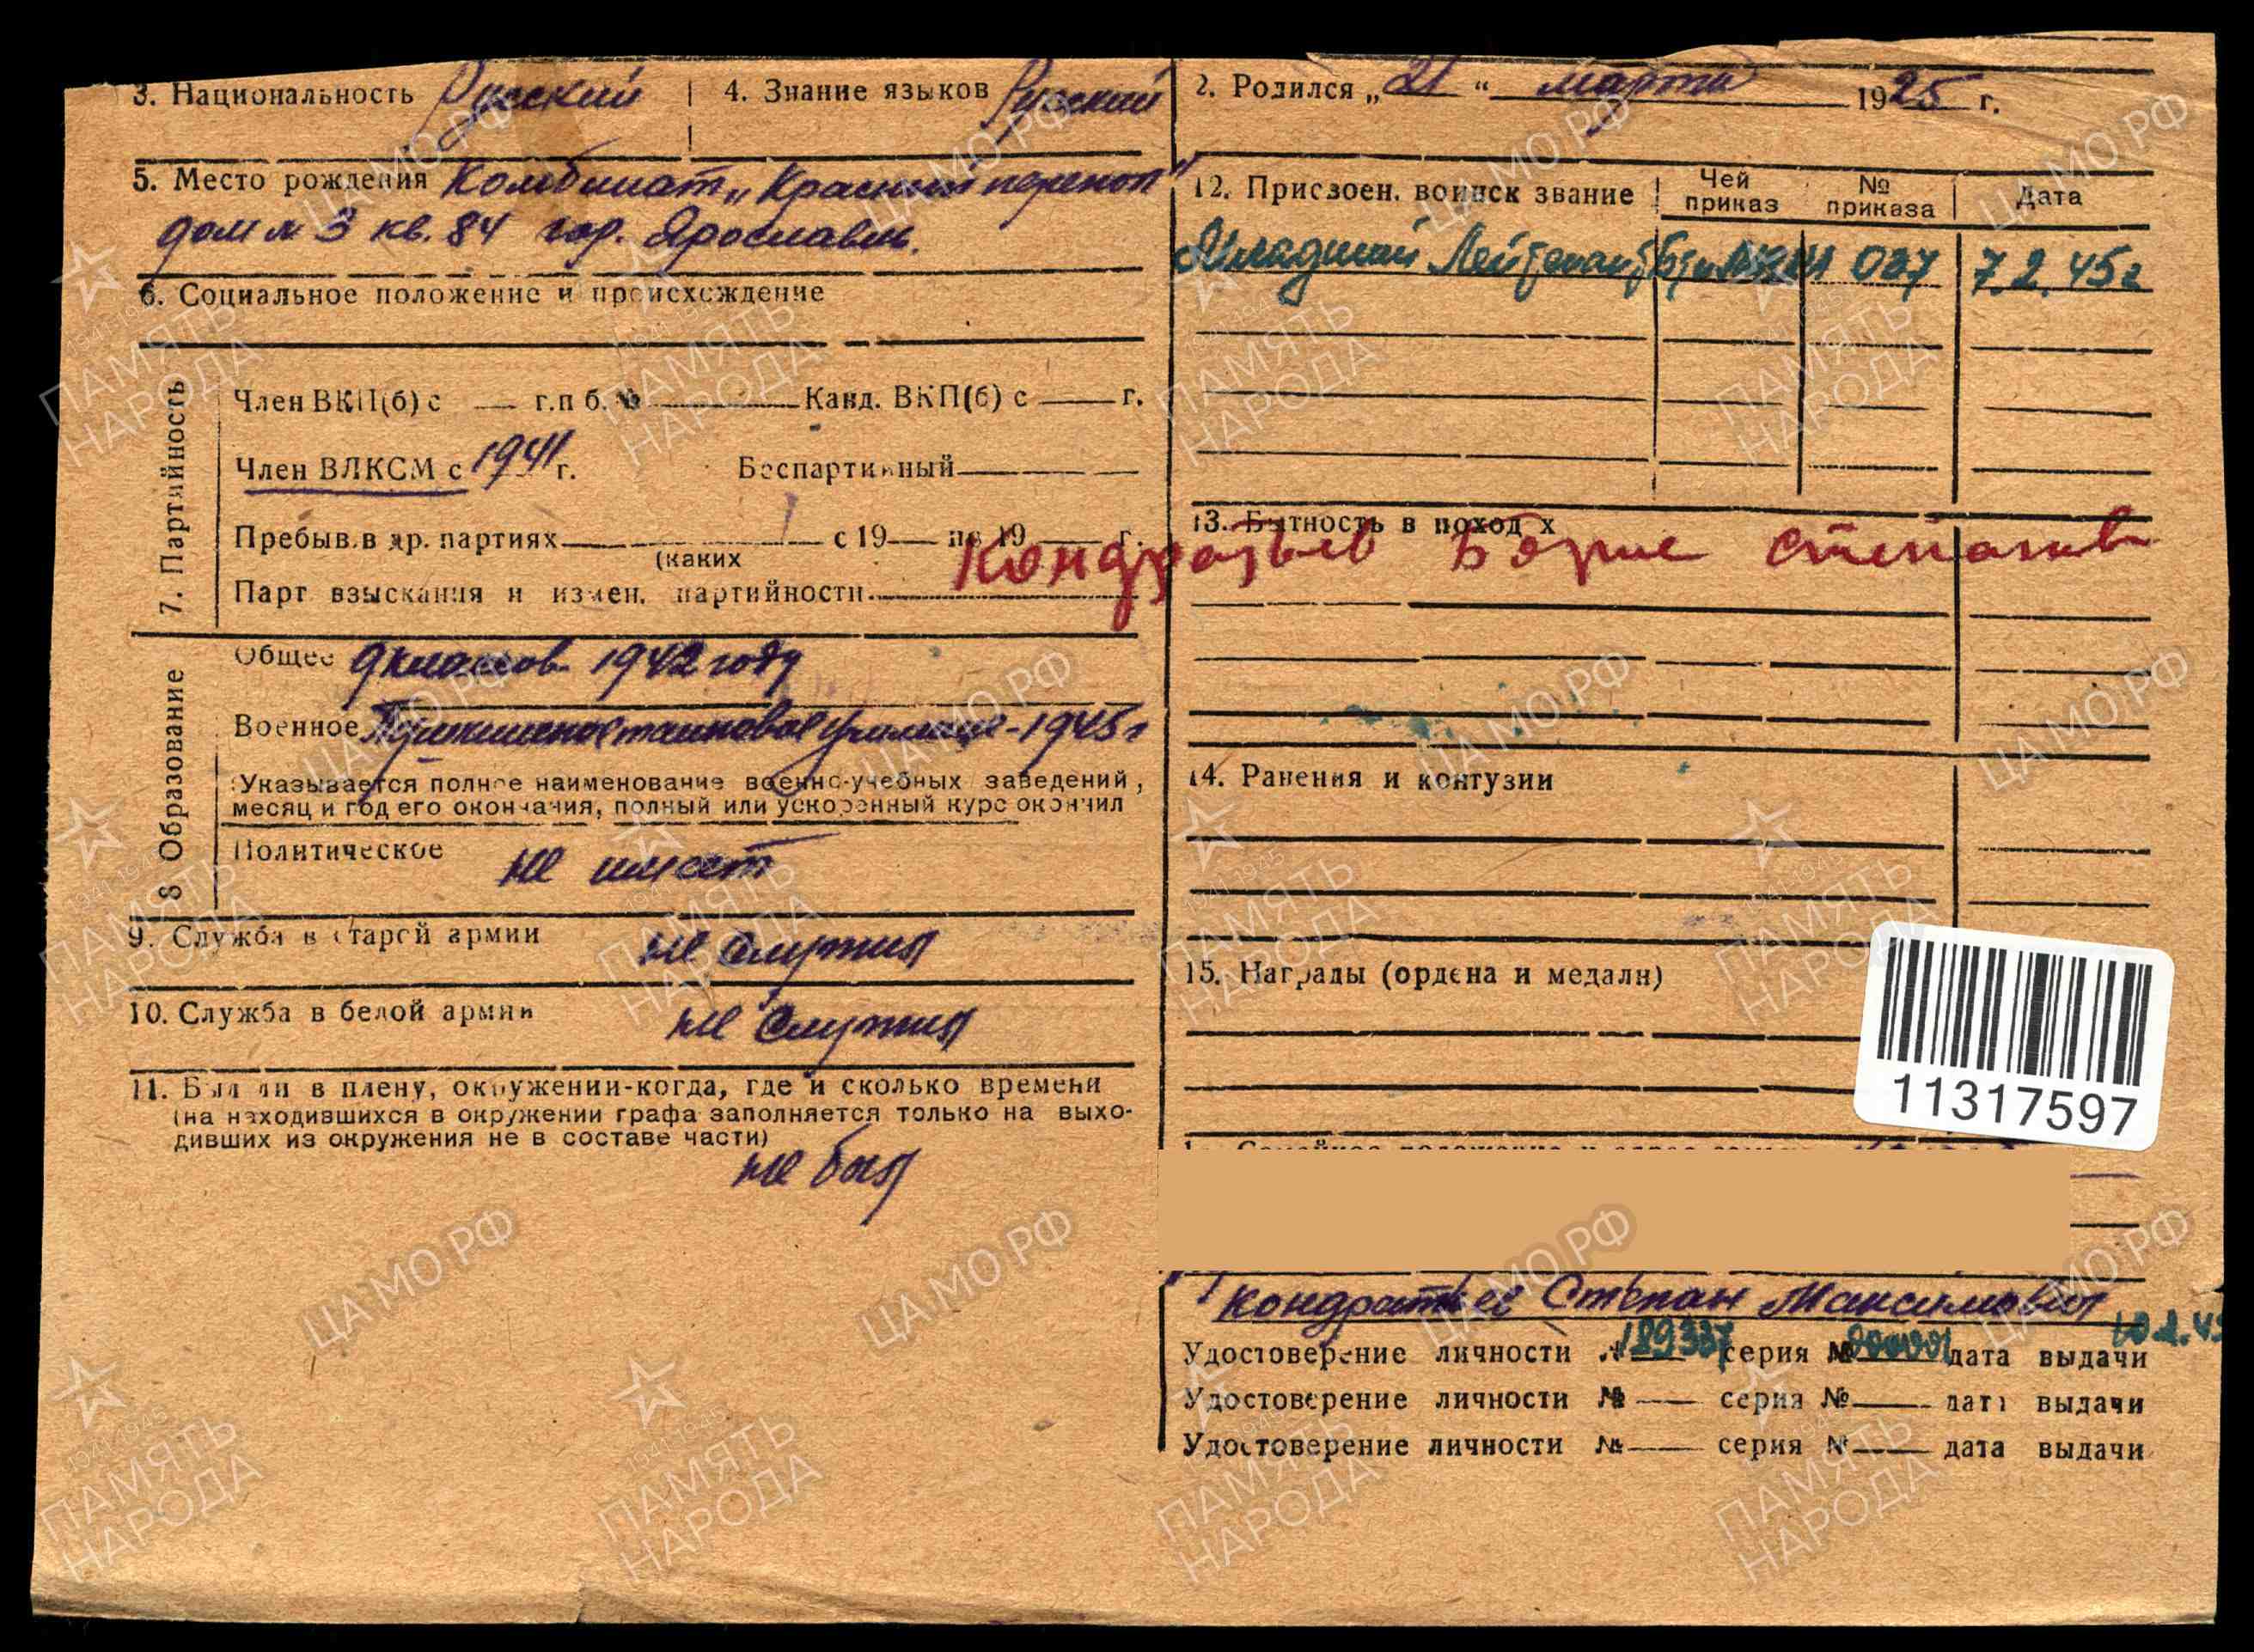 3. Национальность Русский 4. Знание языков Русский
5. Место рождения Комбинат „Красный перекоп"
дом № 3 кв. 84 гор. Ярославль.
6. Социальное положение и происхождение
7. Партийность
Член ВКП(б) с — г. п б. № Канд. ВКП(б) с — г.
Член ВЛКСМ с 1941 г. Беспартийный
Пребыв. в др. партиях с 19 — по 19 — г.
(каких
Парт взыскания и измен. партийности.
8 Образование
Общее 9 классов 1942 году
Военное училище - 1945 г
Указывается полное наименование военно-учебных заведений,
месяц и год его окончания, полный или ускоренный курс окончил
Политическое не имеет
9. Служба в старой армии не служил
10. Служба в белой армии не служил
11. Был ли в плену, окружении-когда, где и сколько времени
(на находившихся в окружении графа заполняется только на выхо-
дивших из окружения не в составе части)
не был
2. Родился „21" марта 1925 г.
12. Присвоен. воинск звание Чей приказ № приказа Дата
Младший Лейтенант 027 7.2.45г
13. Бытность в походах
Кондратьев Борис Степанов
14. Ранения и контузии
15. Награды (ордена и медали)
11317597
Кондратьев Степан Максимович
Удостоверение личности № 189337 серия № дата выдачи
Удостоверение личности № — серия № — дата выдачи
Удостоверение личности № — серия № — дата выдачи
ЦАМО.РФ
1941-1945
ПАМЯТЬ
НАРОДА